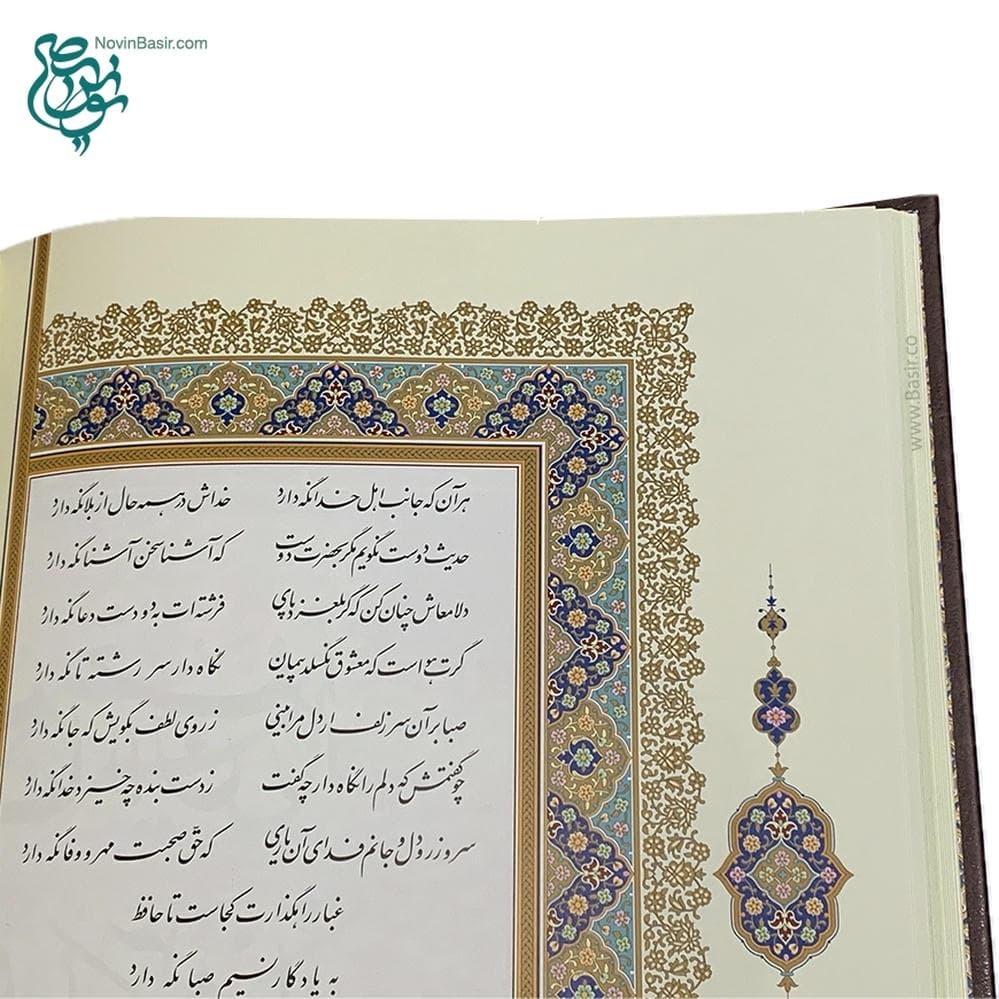 NovinBasir.com
www.Basir.co
هر آن که جانب اهل خدا نگه دارد خداش در همه حال از بلا نگه دارد
حدیث دوست نگویم مگر به حضرت دوست که آشنا سخن آشنا نگه دارد
دلا معاش چنان کن که گر بلغزد پای فرشته‌ات به دو دست دعا نگه دارد
گرت هواست که معشوق نگسلد پیمان نگاه دار سر رشته تا نگه دارد
صبا بر آن سر زلف ار دل مرا بینی ز روی لطف بگویش که جا نگه دارد
چو گفتمش که دلم را نگاه دار چه گفت ز دست بنده چه خیزد خدا نگه دارد
سر و زر و دل و جانم فدای آن یاری که حق صحبت مهر و وفا نگه دارد
غبار راهگذارت کجاست تا حافظ
به یادگار نسیم صبا نگه دارد